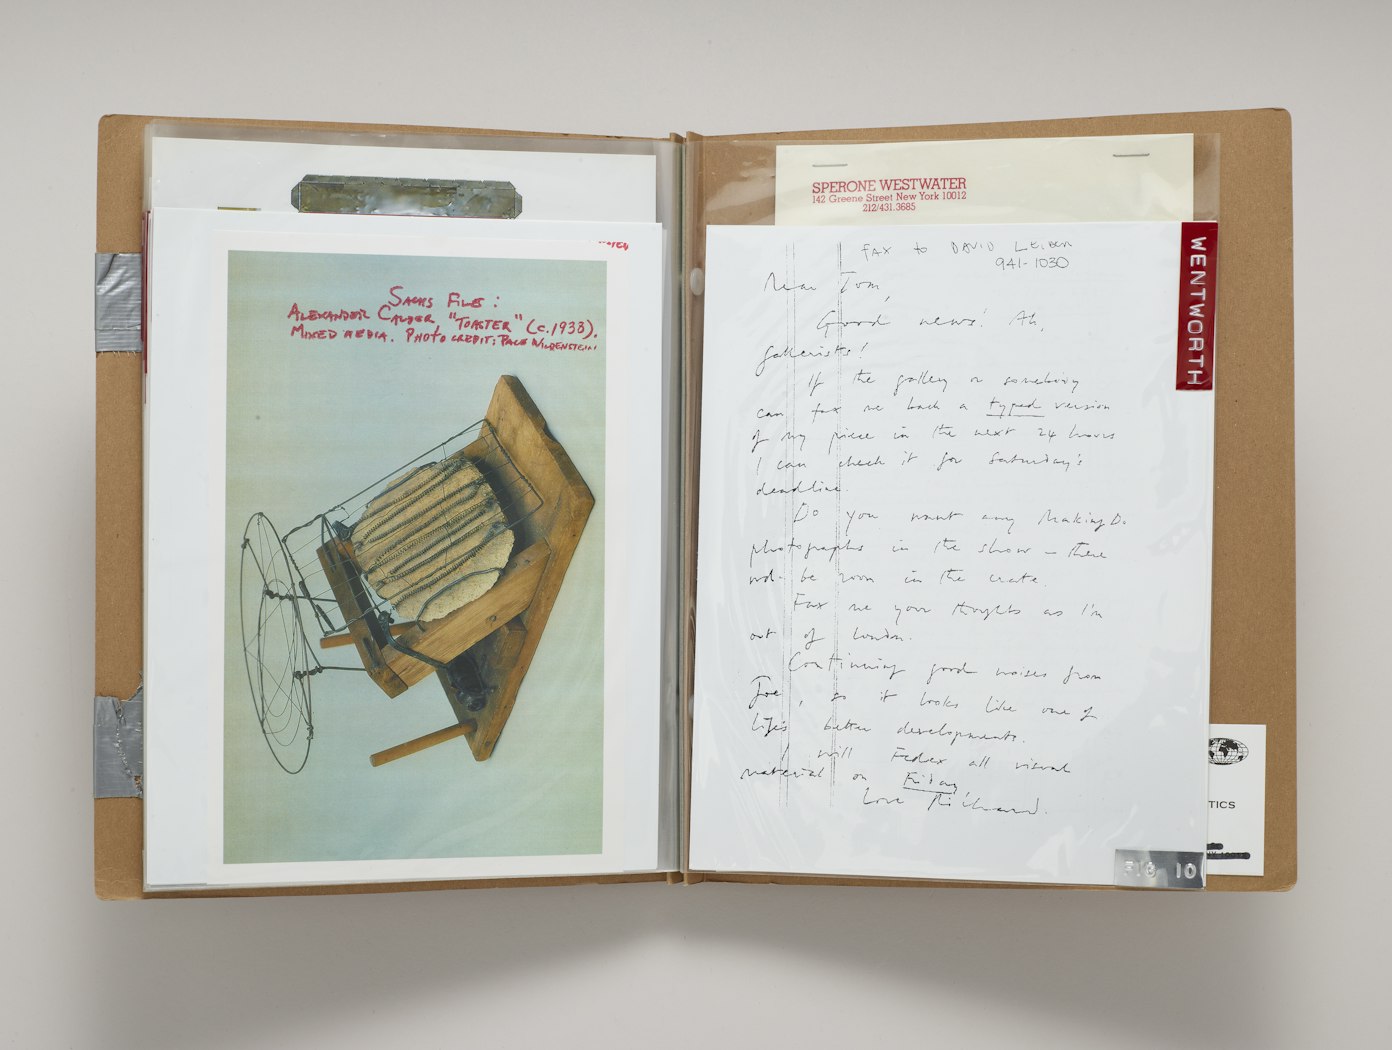 SACHS FILES :
ALEXANDER CALDER "TOASTER" (c.1938).
MIXED MEDIA. PHOTO CREDIT: PACE WILDENSTEIN
SPERONE WESTWATER
142 Greene Street New York 10012
212/431.3685
WENTWORTH
FAX to DAVID LEIBER
941-1030
Dear Tom,
Good news! Ah,
gallerists!
If the gallery or somebody
can fax me back a typed version
of my piece in the next 24 hours
I can check it for Saturday's
deadline.
Do you want any Making Do
photographs in the show – there
wd. be room in the crate.
Fax me your thoughts as I'm
out of London.
Continuing good noises from
Joe, so it looks like one of
life's better developments.
I will Fedex all visual
material on Friday.
Love Richard.
TICS
FIG 10